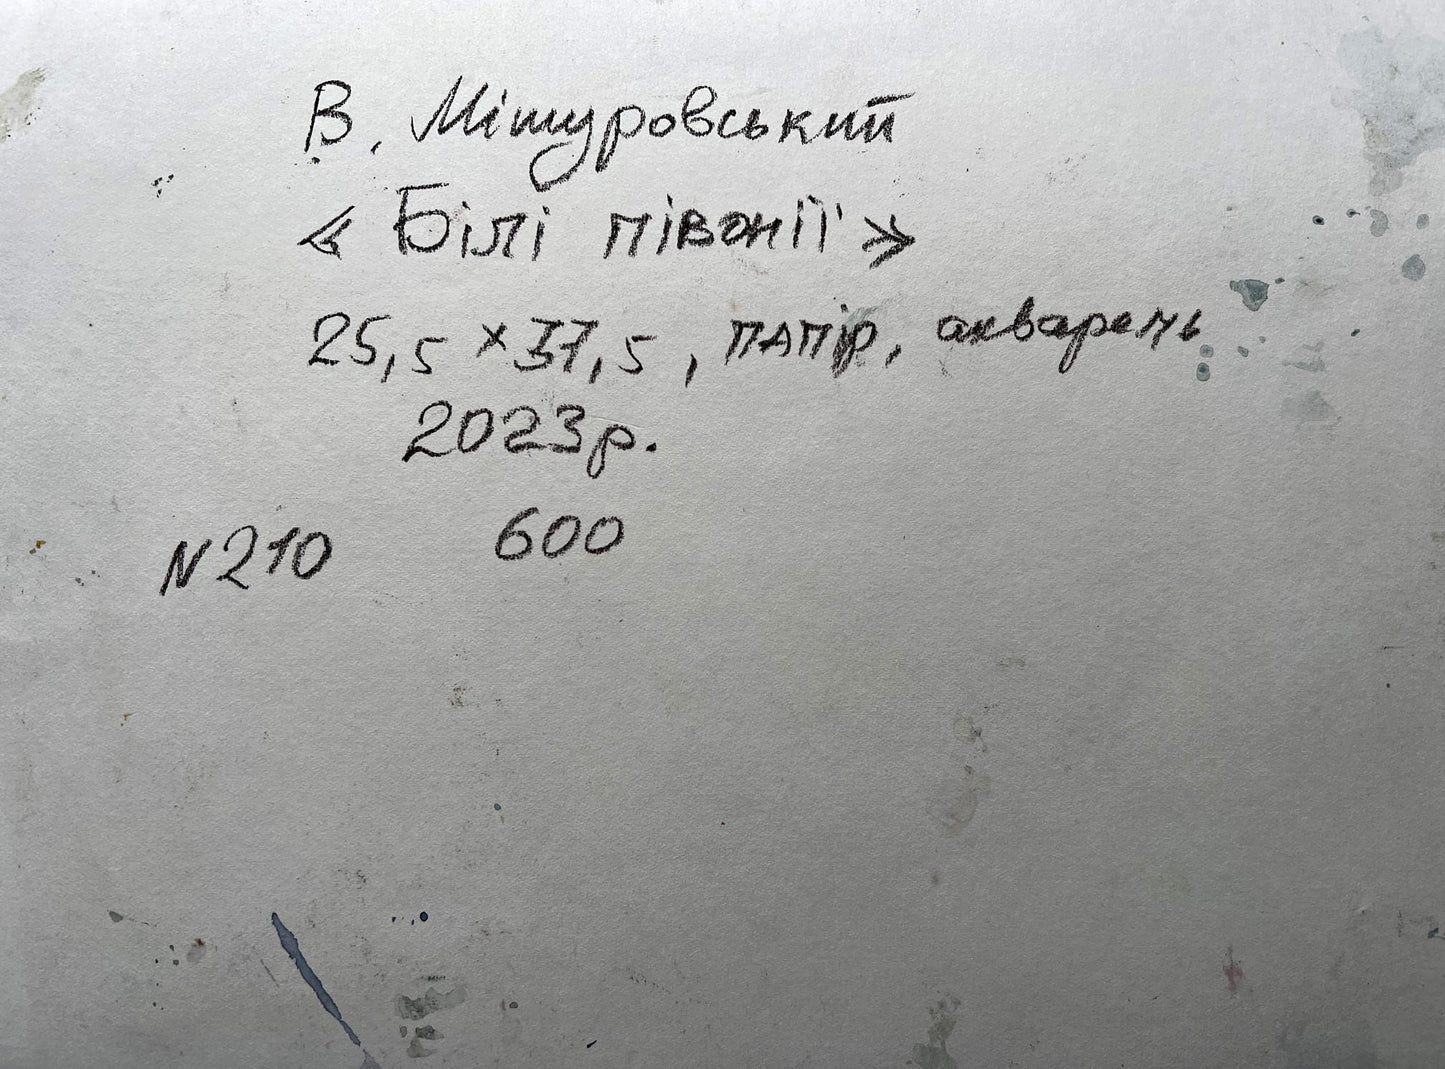 В. Мішуровський
« Білі півонії »
25,5 × 37,5, папір, акварель
2023р.
N210 600